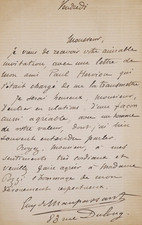 Vendredi
Monsieur,
je viens de recevoir votre aimable
invitation avec une lettre de
mon ami Paul Hervieu qui
s'était chargé de me la transmettre
Je serai heureux, monsieur,
d'entrer en relations d'une façon
aussi agréable avec un homme
de votre valeur, dont j'ai bien
souvent entendu parler.
Croyez, Monsieur, à mes
sentiments très cordiaux et
veuillez faire agréer à Madame
Pozzi l'hommage de mon
dévouement respectueux.
Guy de Maupassant
83 rue Dulong